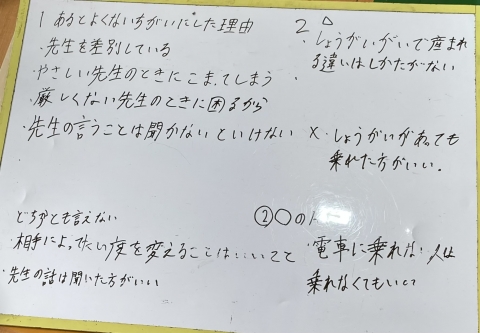 1 あるとよくないちがいにした理由
・先生を差別している
・やさしい先生のときにこまってしまう
・厳しくない先生のときに困るから
・先生の言うことは聞かないといけない
どちらとも言えない
・相手によってたい度を変えることは
・先生の話は聞いた方がいい
2 △
・しょうがいがいで産まれ
る違いはしかたがない
×・しょうがいがあっても
乗れた方がいい.
②○の人
・電車に乗れない人は
乗れなくてもいい